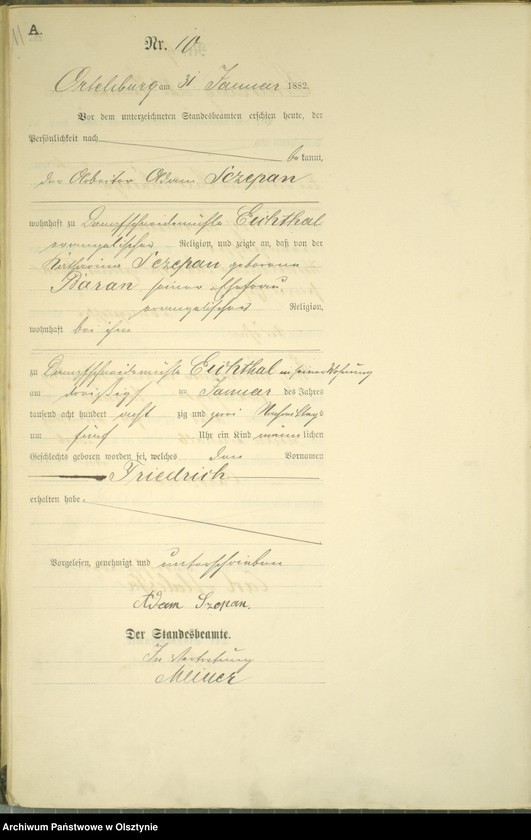 11
A.
Nr. 10
Ortelsburg am 31 Januar 1882.
Vor dem unterzeichneten Standesbeamten erschien heute, der
Persönlichkeit nach
be kannt,
der Arbeiter Adam Sczepan
wohnhaft zu Dampfschneidemühle Eichthal
evangelischer Religion, und zeigte an, daß von der
Katharina Sczepan geborene
Baran seiner Ehefrau
evangelischer Religion,
wohnhaft bei ihm
zu Dampfschneidemühle Eichthal in seiner Wohnung
am dreißigsten Januar des Jahres
tausend acht hundert acht zig und zwei Nachmittags
um fünf Uhr ein Kind männlichen
Geschlechts geboren worden sei, welches den Vornamen
Friedrich
erhalten habe.
Vorgelesen, genehmigt und unterschrieben
Adam Szepan.
Der Standesbeamte.
In Vertretung
Archiwum Państwowe w Olsztynie